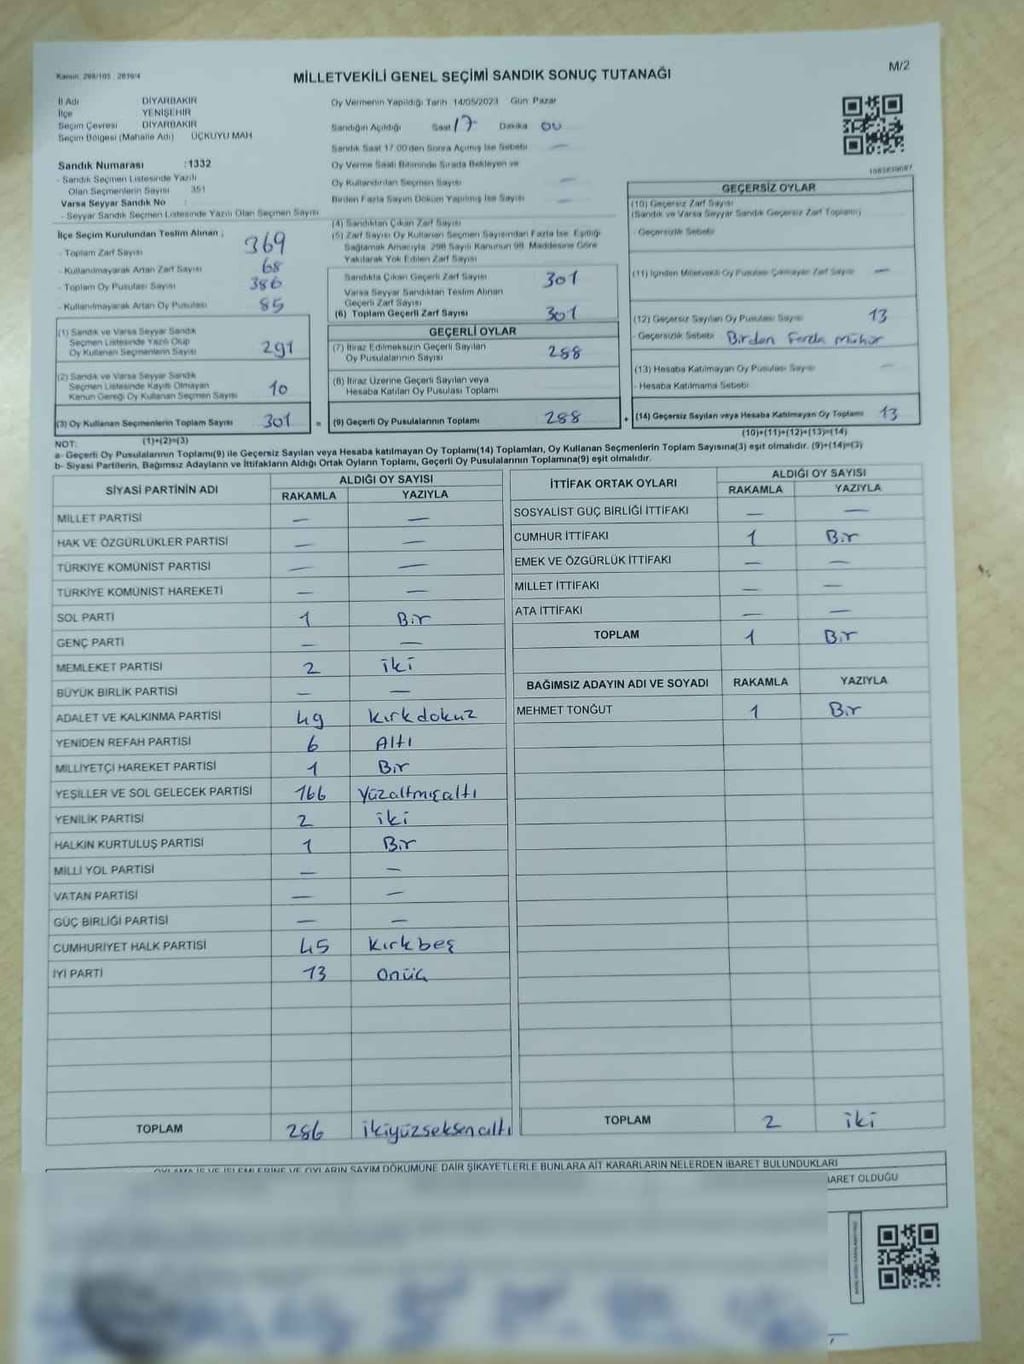 Kanun: 298/105 : 2010/4
MİLLETVEKİLİ GENEL SEÇİMİ SANDIK SONUÇ TUTANAĞI
M/2
İl Adı DİYARBAKIR
İlçe YENİŞEHİR
Seçim Çevresi DİYARBAKIR
Seçim Bölgesi (Mahalle Adı) ÜÇKUYU MAH
Sandık Numarası :1332
- Sandık Seçmen Listesinde Yazılı
Olan Seçmenlerin Sayısı 351
Varsa Seyyar Sandık No
- Seyyar Sandık Seçmen Listesinde Yazılı Olan Seçmen Sayısı
İlçe Seçim Kurulundan Teslim Alınan ;
- Toplam Zarf Sayısı 369
- Kullanılmayarak Artan Zarf Sayısı 68
- Toplam Oy Pusulası Sayısı 386
- Kullanılmayarak Artan Oy Pusulası 85
(1) Sandık ve Varsa Seyyar Sandık
Seçmen Listesinde Yazılı Olup
Oy Kullanan Seçmenlerin Sayısı 291
(2) Sandık ve Varsa Seyyar Sandık
Seçmen Listesinde Kayıtlı Olmayan
Kanun Gereği Oy Kullanan Seçmen Sayısı 10
(3) Oy Kullanan Seçmenlerin Toplam Sayısı 301 =
(1)+(2)=(3)
Oy Vermenin Yapıldığı Tarih 14/05/2023 Gün Pazar
Sandığın Açıldığı Saat 17 Dakika 00
Sandık Saat 17.00'den Sonra Açılmış İse Sebebi —
Oy Verme Saati Bitiminde Sırada Bekleyen ve
Oy Kullandırılan Seçmen Sayısı —
Birden Fazla Sayım Döküm Yapılmış İse Sayısı —
(4) Sandıktan Çıkan Zarf Sayısı
(5) Zarf Sayısı Oy Kullanan Seçmen Sayısından Fazla İse, Eşitliği
Sağlamak Amacıyla, 298 Sayılı Kanunun 98. Maddesine Göre
Yakılarak Yok Edilen Zarf Sayısı
Sandıkta Çıkan Geçerli Zarf Sayısı 301
Varsa Seyyar Sandıktan Teslim Alınan
Geçerli Zarf Sayısı
(6) Toplam Geçerli Zarf Sayısı 301
GEÇERLİ OYLAR
(7) İtiraz Edilmeksizin Geçerli Sayılan
Oy Pusulalarının Sayısı 288
(8) İtiraz Üzerine Geçerli Sayılan veya
Hesaba Katılan Oy Pusulası Toplamı
(9) Geçerli Oy Pusulalarının Toplamı 288 +
GEÇERSİZ OYLAR
(10) Geçersiz Zarf Sayısı
(Sandık ve Varsa Seyyar Sandık Geçersiz Zarf Toplamı)
- Geçersizlik Sebebi
(11) İçinden Milletvekili Oy Pusulası Çıkmayan Zarf Sayısı —
(12) Geçersiz Sayılan Oy Pusulası Sayısı 13
- Geçersizlik Sebebi Birden Fazla Mühür
(13) Hesaba Katılmayan Oy Pusulası Sayısı —
- Hesaba Katılmama Sebebi
(14) Geçersiz Sayılan veya Hesaba Katılmayan Oy Toplamı 13
(10)+(11)+(12)+(13)=(14)
NOT:
a- Geçerli Oy Pusulalarının Toplamı(9) ile Geçersiz Sayılan veya Hesaba katılmayan Oy Toplamı(14) Toplamları, Oy Kullanan Seçmenlerin Toplam Sayısına(3) eşit olmalıdır. (9)+(14)=(3)
b- Siyasi Partilerin, Bağımsız Adayların ve İttifakların Aldığı Ortak Oyların Toplamı, Geçerli Oy Pusulalarının Toplamına(9) eşit olmalıdır.
SİYASİ PARTİNİN ADI ALDIĞI OY SAYISI
RAKAMLA YAZIYLA
MİLLET PARTİSİ — —
HAK VE ÖZGÜRLÜKLER PARTİSİ — —
TÜRKİYE KOMÜNİST PARTİSİ — —
TÜRKİYE KOMÜNİST HAREKETİ — —
SOL PARTİ 1 Bir
GENÇ PARTİ — —
MEMLEKET PARTİSİ 2 iki
BÜYÜK BİRLİK PARTİSİ — —
ADALET VE KALKINMA PARTİSİ 49 kırkdokuz
YENİDEN REFAH PARTİSİ 6 Altı
MİLLİYETÇİ HAREKET PARTİSİ 1 Bir
YEŞİLLER VE SOL GELECEK PARTİSİ 166 Yüzaltmışaltı
YENİLİK PARTİSİ 2 iki
HALKIN KURTULUŞ PARTİSİ 1 Bir
MİLLİ YOL PARTİSİ — —
VATAN PARTİSİ — —
GÜÇ BİRLİĞİ PARTİSİ — —
CUMHURİYET HALK PARTİSİ 45 kırkbeş
İYİ PARTİ 13 onüç
TOPLAM 286 ikiyüzseksenaltı
İTTİFAK ORTAK OYLARI ALDIĞI OY SAYISI
RAKAMLA YAZIYLA
SOSYALİST GÜÇ BİRLİĞİ İTTİFAKI — —
CUMHUR İTTİFAKI 1 Bir
EMEK VE ÖZGÜRLÜK İTTİFAKI — —
MİLLET İTTİFAKI — —
ATA İTTİFAKI — —
TOPLAM 1 Bir
BAĞIMSIZ ADAYIN ADI VE SOYADI RAKAMLA YAZIYLA
MEHMET TONĞUT 1 Bir
TOPLAM 2 iki
OYLAMA İŞ VE İŞLEMLERİNE VE OYLARIN SAYIM DÖKÜMÜNE DAİR ŞİKAYETLERLE BUNLARA AİT KARARLARIN NELERDEN İBARET BULUNDUKLARI
İBARET OLDUĞU